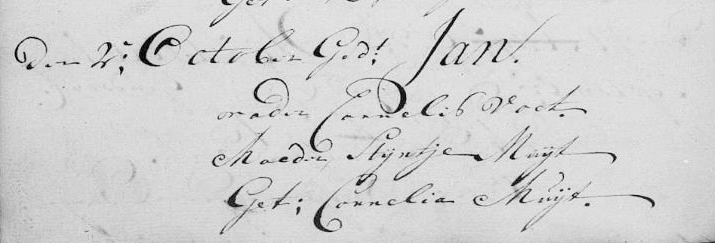 Den 2: October Ged: Jan.
vader Cornelis Voct.
Moeder Styntje Muyt
Get: Cornelia Muyt.